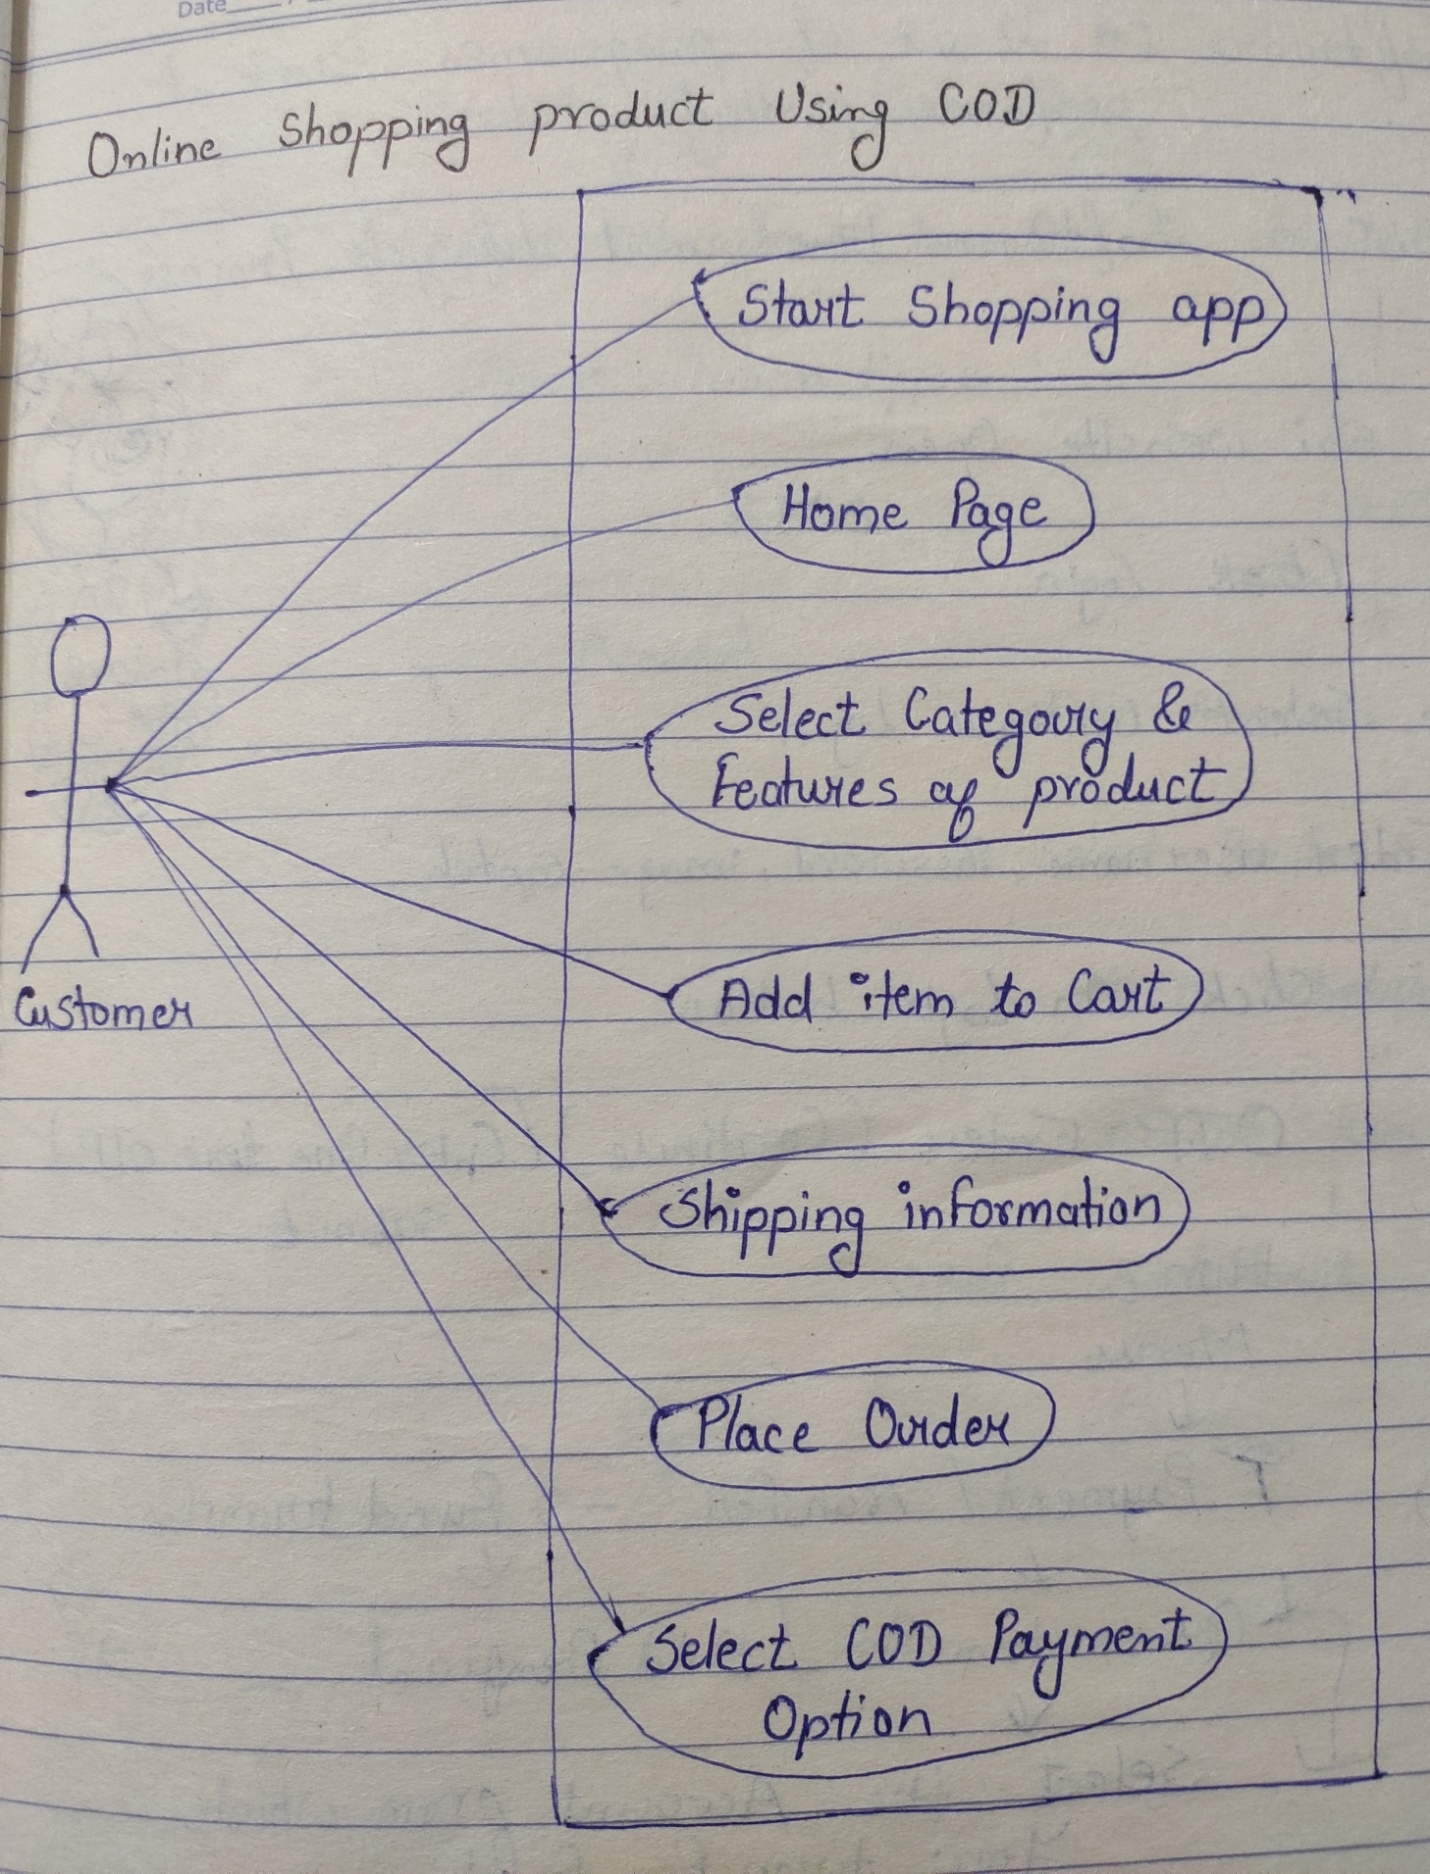 Date
Online Shopping product Using COD
Start Shopping app
Home Page
Select Category &
Features of product
Customer
Add item to Cart
Shipping information
Place Order
Select COD Payment
Option